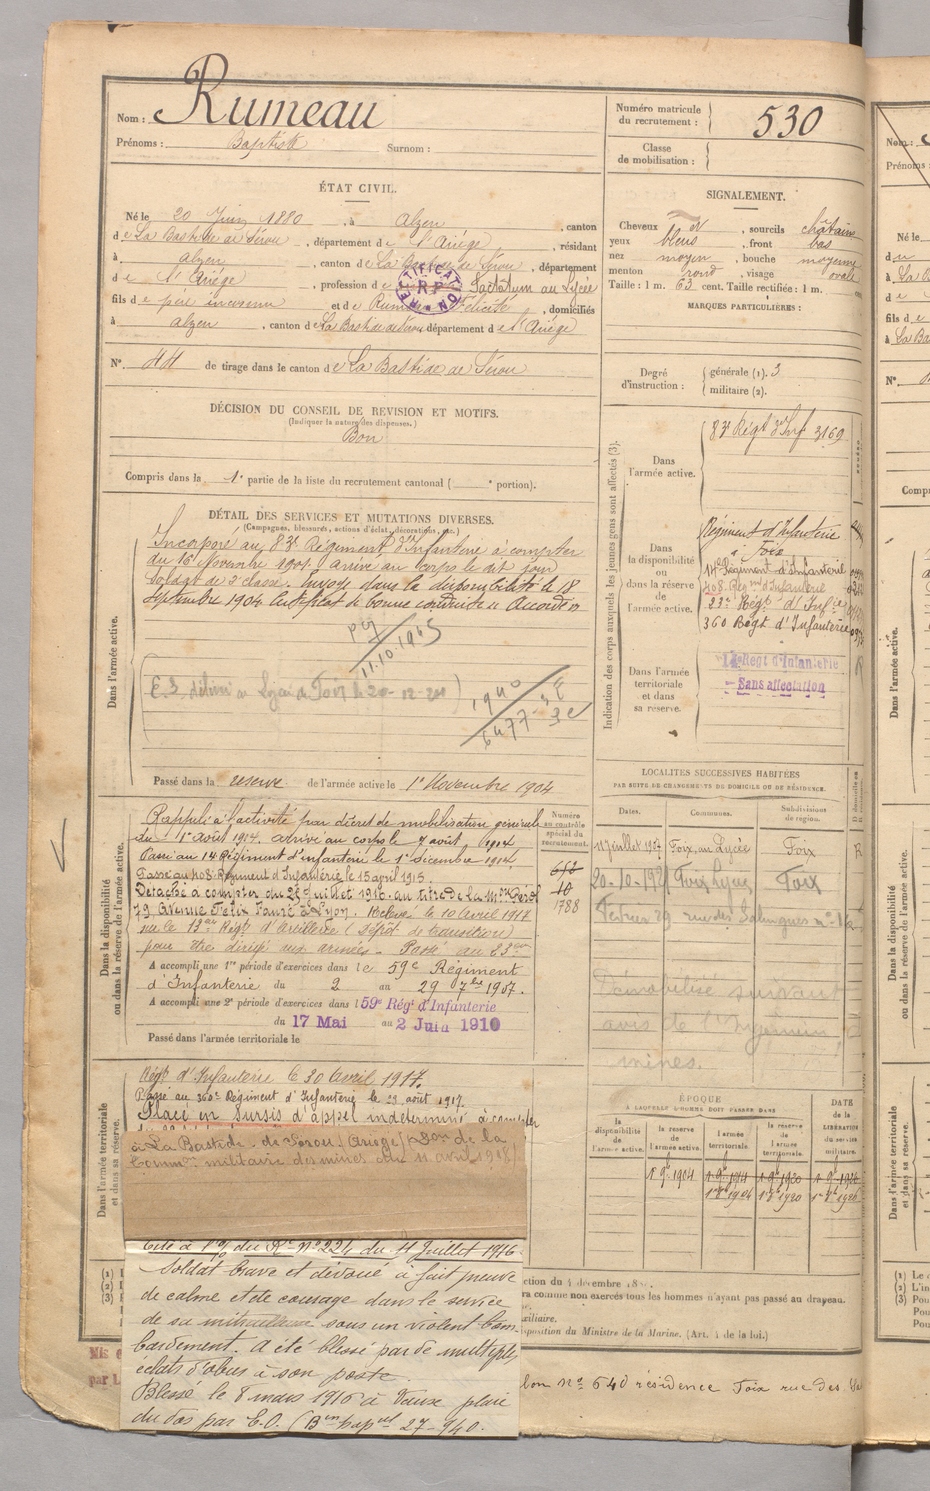 Nom : Rumeau
Prénoms : Baptiste Surnom :
Numéro matricule du recrutement : 530
Classe de mobilisation :
ÉTAT CIVIL.
Né le 20 Juin 1880, à Alzen, canton
de La Bastide de Sérou, département de l'Ariège, résidant
à Alzen, canton de La Bastide de Sérou, département
de l'Ariège, profession de au Lycée
RECTIFICATION R.P.
fils de père inconnu et de Rumeau Félicité, domiciliés
à Alzen, canton de La Bastide de Sérou département de l'Ariège
N° 44 de tirage dans le canton de La Bastide de Sérou
SIGNALEMENT.
Cheveux et sourcils châtains
yeux bleus, front bas
nez moyen, bouche moyenne
menton rond, visage ovale
Taille : 1 m. 63 cent. Taille rectifiée : 1 m.
MARQUES PARTICULIÈRES :
Degré d'instruction : générale (1). 3
militaire (2).
DÉCISION DU CONSEIL DE REVISION ET MOTIFS.
(Indiquer la nature des dispenses.)
Bon
Compris dans la 1e partie de la liste du recrutement cantonal ( e portion).
DÉTAIL DES SERVICES ET MUTATIONS DIVERSES.
(Campagnes, blessures, actions d'éclat, décorations, etc.)
Dans l'armée active.
Incorporé au 83e Régiment d'Infanterie à compter
du 16 Novembre 1901. Arrivé au corps le dit jour
Soldat de 2e classe. Envoyé dans la disponibilité le 18
Septembre 1904. Certificat de bonne conduite accordé
11.10.1945
Lycée de Foix le 20-12-21
1940
6477
Passé dans la réserve de l'armée active le 1er Novembre 1904
Indication des corps auxquels les jeunes gens sont affectés (3).
Dans l'armée active.
83e Régt d'Inf 3169
Dans la disponibilité ou dans la réserve de l'armée active.
Régiment d'Infanterie
à Foix
14e Régiment d'Infanterie
408 Régnt d'Infanterie
23e Regt d'Infie
360 Régt d'Infanterie
Dans l'armée territoriale et dans sa réserve.
14e Régt d'Infanterie
Sans affectation
LOCALITÉS SUCCESSIVES HABITÉES
PAR SUITE DE CHANGEMENTS DE DOMICILE OU DE RÉSIDENCE.
Dates. Communes. Subdivisions de région.
Juillet 1907 Foix, au Lycée Foix R
20-10-1921 Foix Lycée Foix
29 rue des Salenques
Démobilisé suivant
avis de l'Ingénieur
mines.
Dans la disponibilité ou dans la réserve de l'armée active.
Numéro au contrôle spécial du recrutement.
Rappelé à l'activité par décret de mobilisation générale
du 1er août 1914. Arrivé au corps le 7 août 1914
Passé au 14e Régiment d'infanterie le 1er Décembre 1914
Passé au 408 Régiment d'Infanterie le 15 avril 1915.
Détaché à compter du 25 Juillet 1916 au titre de la
79 Avenue Félix Faure à Lyon. le 10 Avril 1917
sur le 13e Régt d'artillerie (Dépôt de transition)
pour être dirigé aux armées. Passé au 23ème
10
1788
A accompli une 1re période d'exercices dans le 59e Régiment
d'Infanterie du 2 au 29 7bre 1907.
A accompli une 2e période d'exercices dans l 59e Rég. d'Infanterie
du 17 Mai au 2 Juin 1910
Passé dans l'armée territoriale le
Dans l'armée territoriale et dans sa réserve.
Régt d'Infanterie le 30 avril 1917.
Passé au 360e Régiment d'Infanterie le 23 août 1917.
Placé en Sursis d'appel indéterminé à compter
à La Bastide de Sérou (Ariège) de la
militaire des mines du 11 avril 1918
ÉPOQUE
À LAQUELLE L'HOMME DOIT PASSER DANS
DATE de la LIBÉRATION du service militaire.
la disponibilité de l'armée active. la réserve de l'armée active. l'armée territoriale. la réserve de l'armée territoriale.
1er 9bre 1904 1er 9bre 1914 1er 9bre 1920 1er 9bre 1926
Cité à l'o/ du Rt N° 224 du 4 Juillet 1916
Soldat brave et dévoué a fait preuve
de calme et de courage dans le service
de sa mitrailleuse sous un violent bom-
bardement. A été blessé par de multiples
éclats d'obus à son poste.
Blessé le 8 mars 1916 à Vaux plaie
du dos par E.O. ( 27-940.
ction du 4 décembre
ra comme non exercés tous les hommes n'ayant pas passé au drapeau.
uxiliaire.
sposition du Ministre de la Marine. (Art. de la loi.)
n° 640 résidence Foix rue des